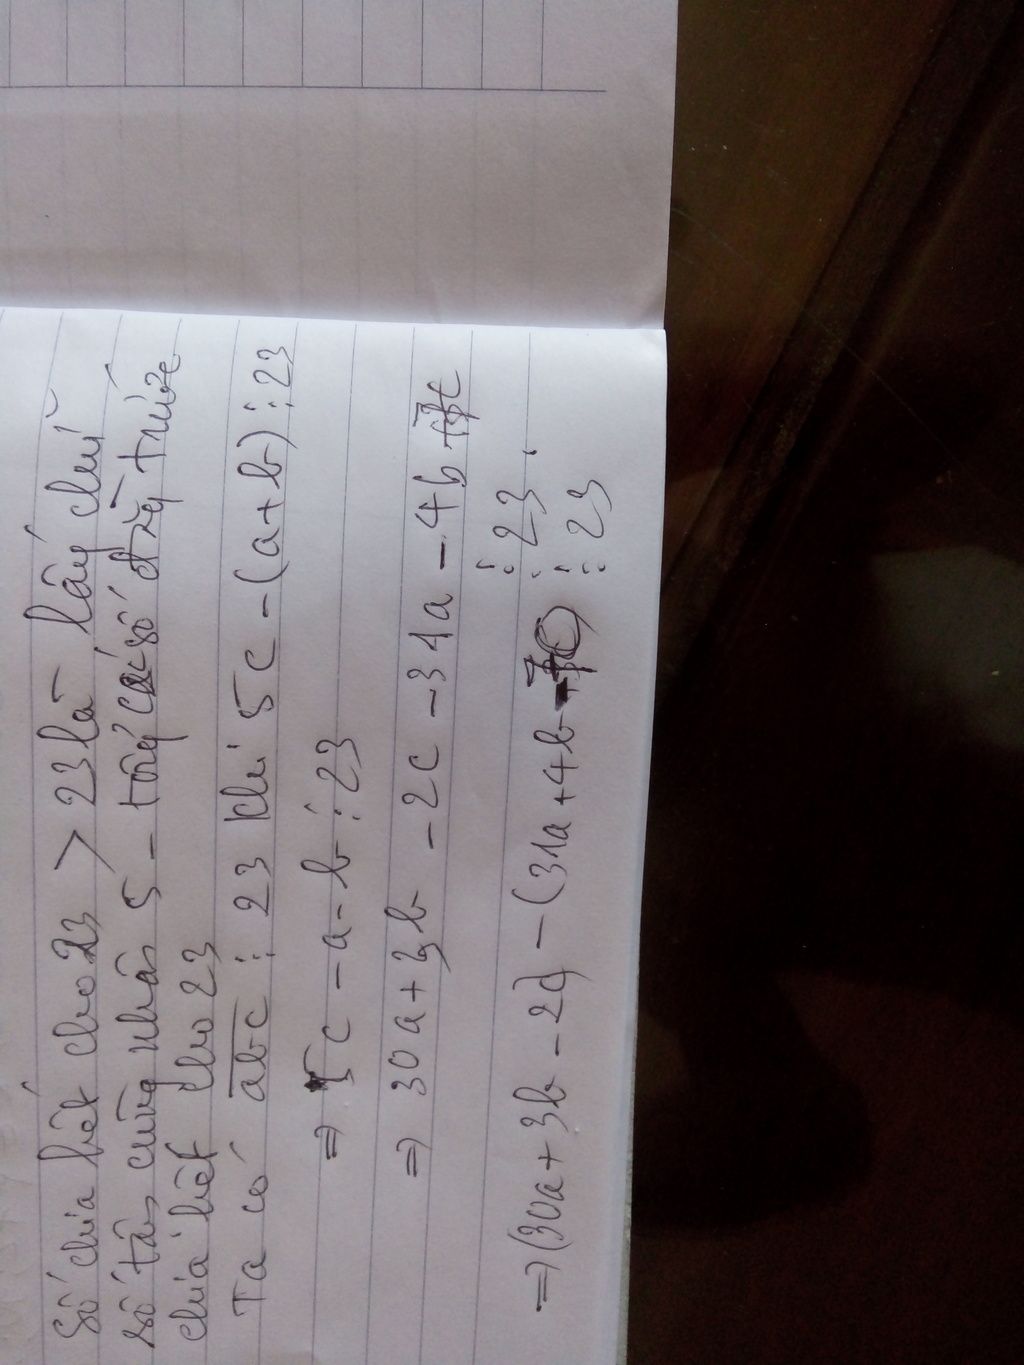 Số chia hết cho 23 > 23 là lấy chữ
số tận cùng nhân 5 - tổng các số đứng trước
chia hết cho 23
Ta có abc ⋮ 23 khi 5c - (a+b) ⋮ 23
=> 5c - a - b ⋮ 23
=> 30a + 3b - 2c - 31a - 4b + 7c
⋮ 23
=> (30a + 3b - 2c) - (31a + 4b - 7c) ⋮ 23